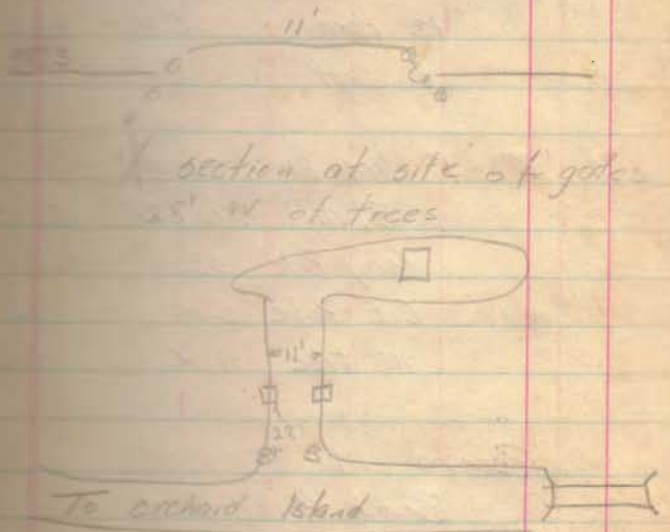 11'
X section at site of gate
25' W of trees
11'
22'
To orchard Island